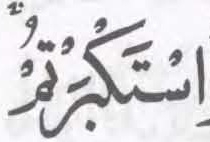 اسْتَكْبَرْتُمْ